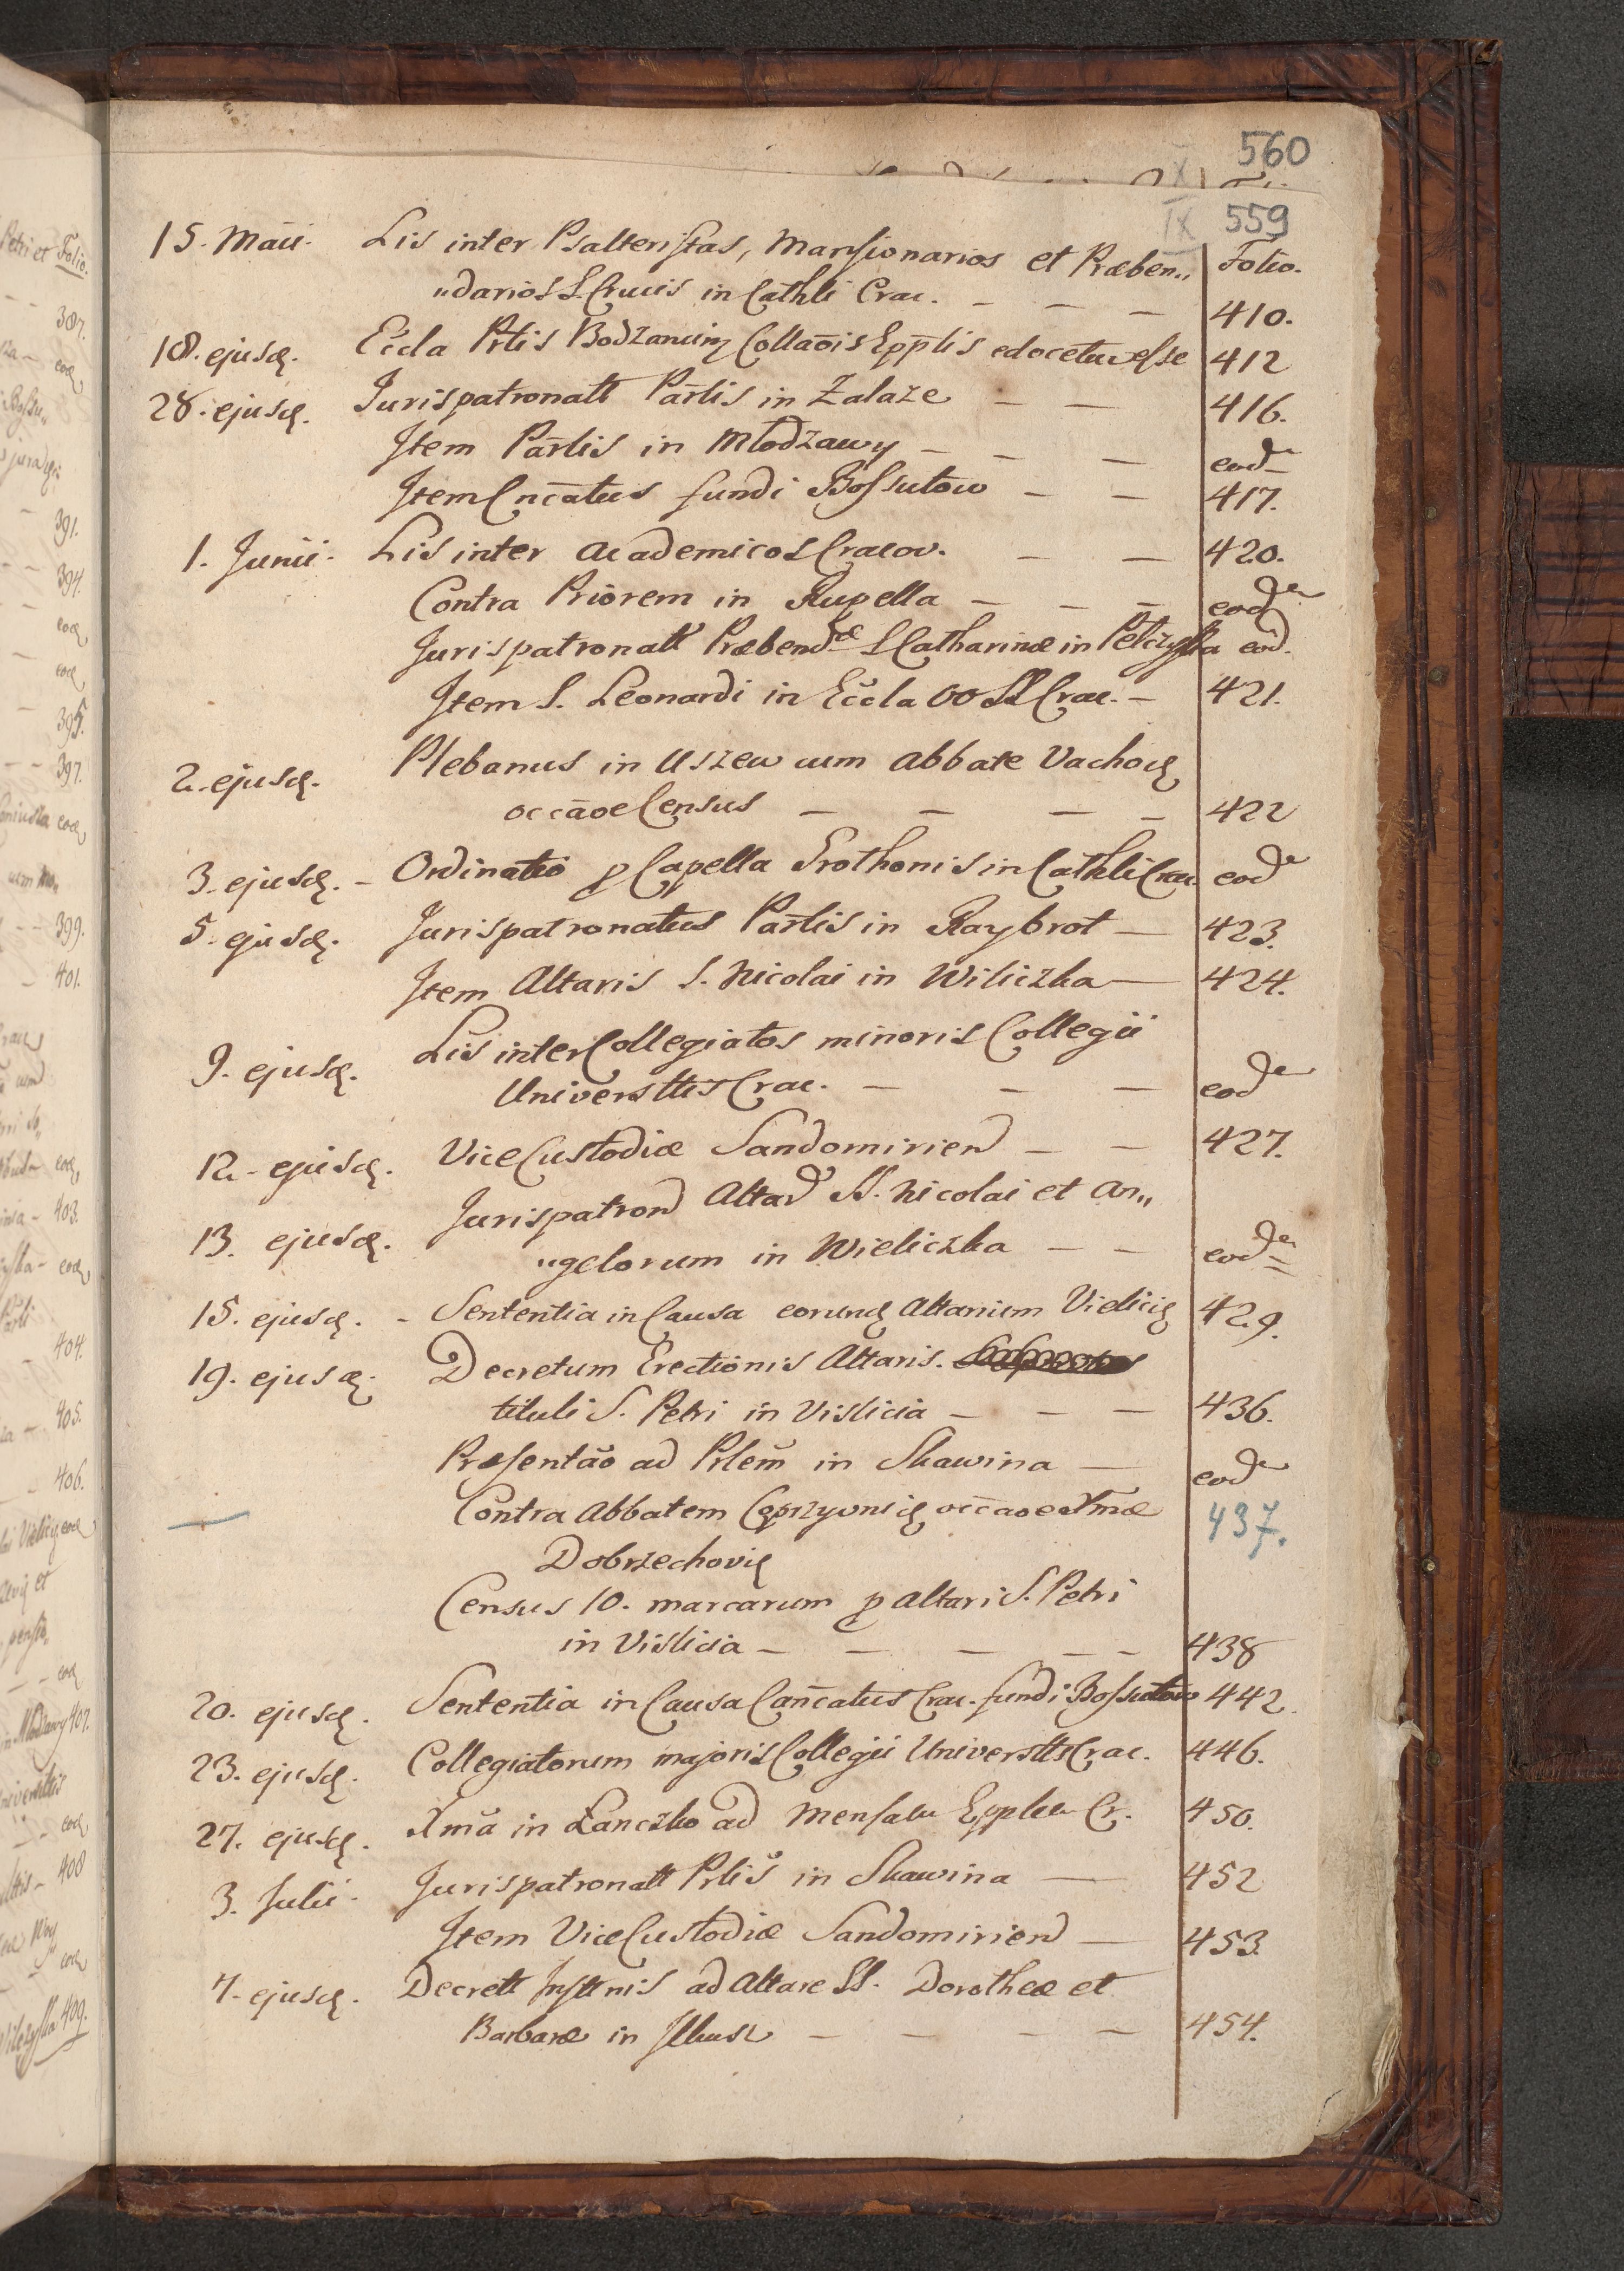 560
IX 559
15. Maii. Lis inter Psalteristas, Mansionarios et Præben„ Folio.
„darios S Crucis in Cathli Crac. — — — 410.
18. ejusd. Eccla Prlis Bodzancin Collaōis Epp̄lis edocetur esse 412
28. ejusd. Jurispatronatt Parlis in Zalaze — — 416.
Item Parlis in Mlodzawy — — — eodē
Item Cncatus fundi Bossutow — — 417.
1. Junii. Lis inter Academicos Cracov. — — 420.
Contra Priorem in Rupella — — — eodē
Jurispatronatt Præbendæ S Catharinæ in Pelczyska eod.
Item S. Leonardi in Eccla OO SS Crac. — 421.
2. ejusd. Plebanus in Uszew cum Abbate Vachocē
occāoe Census — — — — 422
3. ejusd. — Ordinatio p Capella Grothonis in Cathli Crac. eodē
5. ejusd. Jurispatronatus Parlis in Raybrot — 423.
Item Altaris S. Nicolai in Wiliczka — 424.
9. ejusd. Lis inter Collegiatos minoris Collegii
Universttis Crac. — — — eodē
12. ejusd. ViceCustodiæ Sandomirien — — 427.
13. ejusd. Jurispatron Altar SS. Nicolai et An„
„gelorum in Wieliczka — — eodē
15. ejusd. — Sententia in Causa eorund Altarium Vielicē 429.
19. ejusd. Decretum Erectionis Altaris.
tituli S. Petri in Vislicia — — — 436.
Præsentāo ad Prlem in Skawina — eodē
Contra Abbatem Coprzyvnicē occāoe Xmæ 437.
Dobrzechoviē
Census 10. marcarum p altari S. Petri
in Vislicia — — — — — 438
20. ejusd. Sententia in Causa Cancatus Crac. fundi Bossutow 442.
23. ejusd. Collegiatorum majoris Collegii Universttis Crac. 446.
27. ejusd. Xma in Lanczko ad Mensam Epplem Cr. 450.
3. Julii. Jurispatronatt Prlis in Skawina — 452
Item ViceCustodiæ Sandomirien — 453.
7. ejusd. Decrett Insttnis ad Altare SS. Dorotheæ et
Barbaræ in Ilkusz — — — — 454.